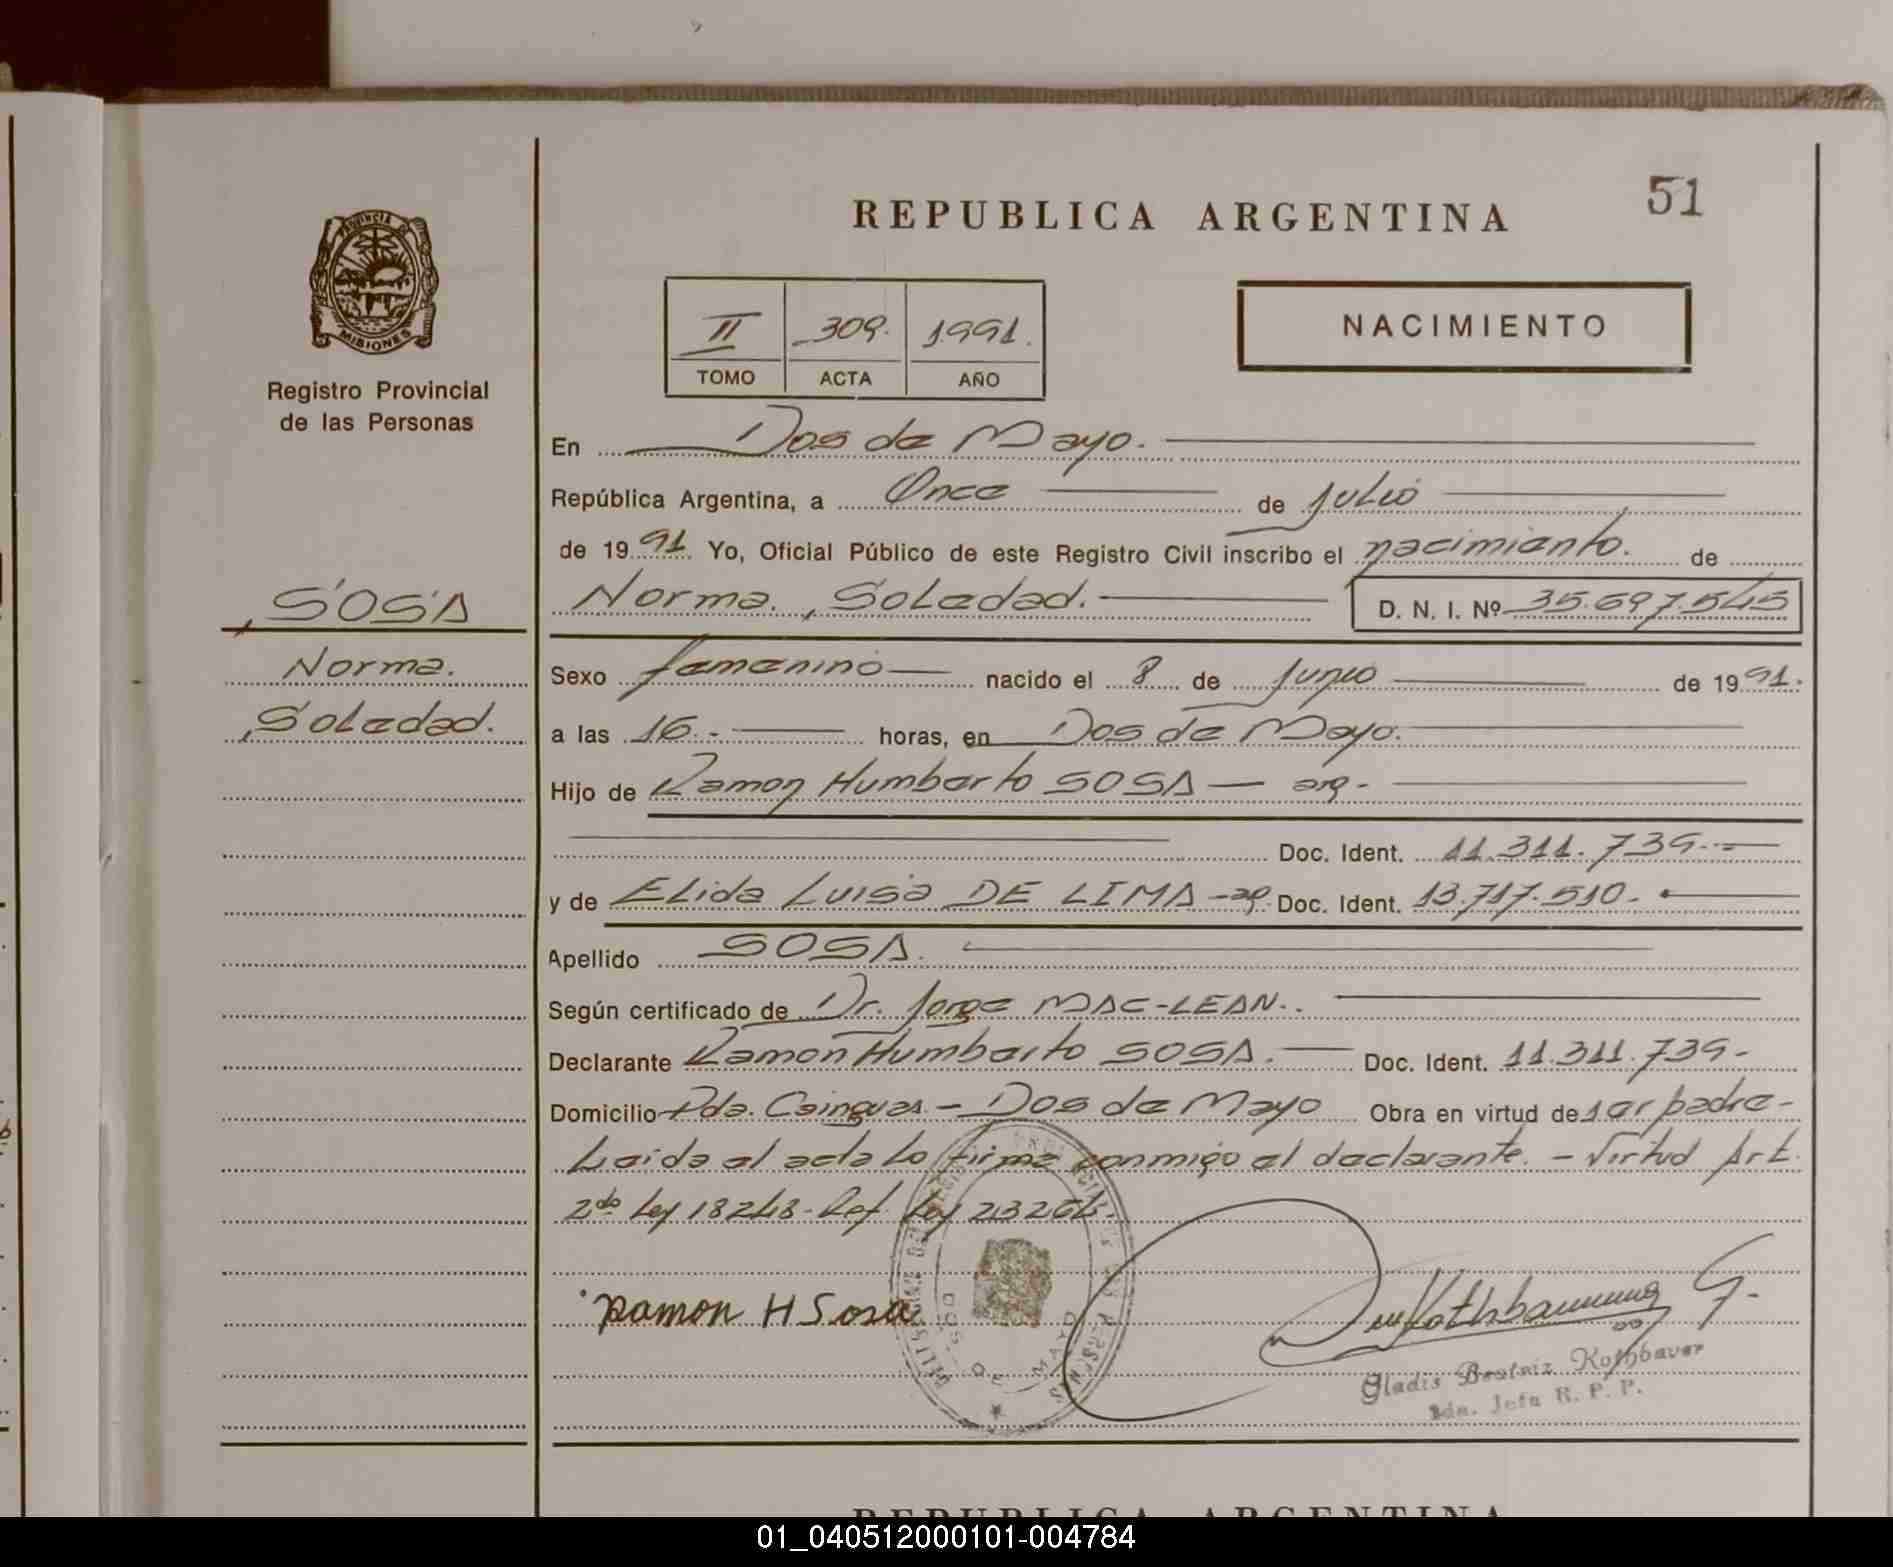 51
REPUBLICA ARGENTINA
PROVINCIA DE
MISIONES
Registro Provincial
de las Personas
II 309. 1991.
TOMO ACTA AÑO
NACIMIENTO
En Dos de Mayo.
República Argentina, a Once de julio
de 1991. Yo, Oficial Público de este Registro Civil inscribo el nacimiento. de
SOSA
Norma., Soledad. D. N. I. Nº 35.697.545
Norma.
Soledad.
Sexo femenino nacido el 8 de junio de 1991.
a las 16.- horas, en Dos de Mayo.
Hijo de Ramon Humberto SOSA — arg.-
Doc. Ident. 11.311.739.-
y de Elida Luisa DE LIMA -ag. Doc. Ident. 13.717.510.-
Apellido SOSA.
Según certificado de Dr. Jorge MAC-LEAN..
Declarante Ramon Humberto SOSA. Doc. Ident. 11.311.739-
Domicilio Pda. Cainguas.- Dos de Mayo Obra en virtud de ser padre-
Leída el acta la firma conmigo el declarante. - Virtud Art.
2do Ley 18248-Ref. Ley 23264
Ramon H Sosa
DOS DE MAYO
Gladis Beatriz Kothbauer
2da. Jefa R. P. P.
REPUBLICA ARGENTINA
01_040512000101-004784